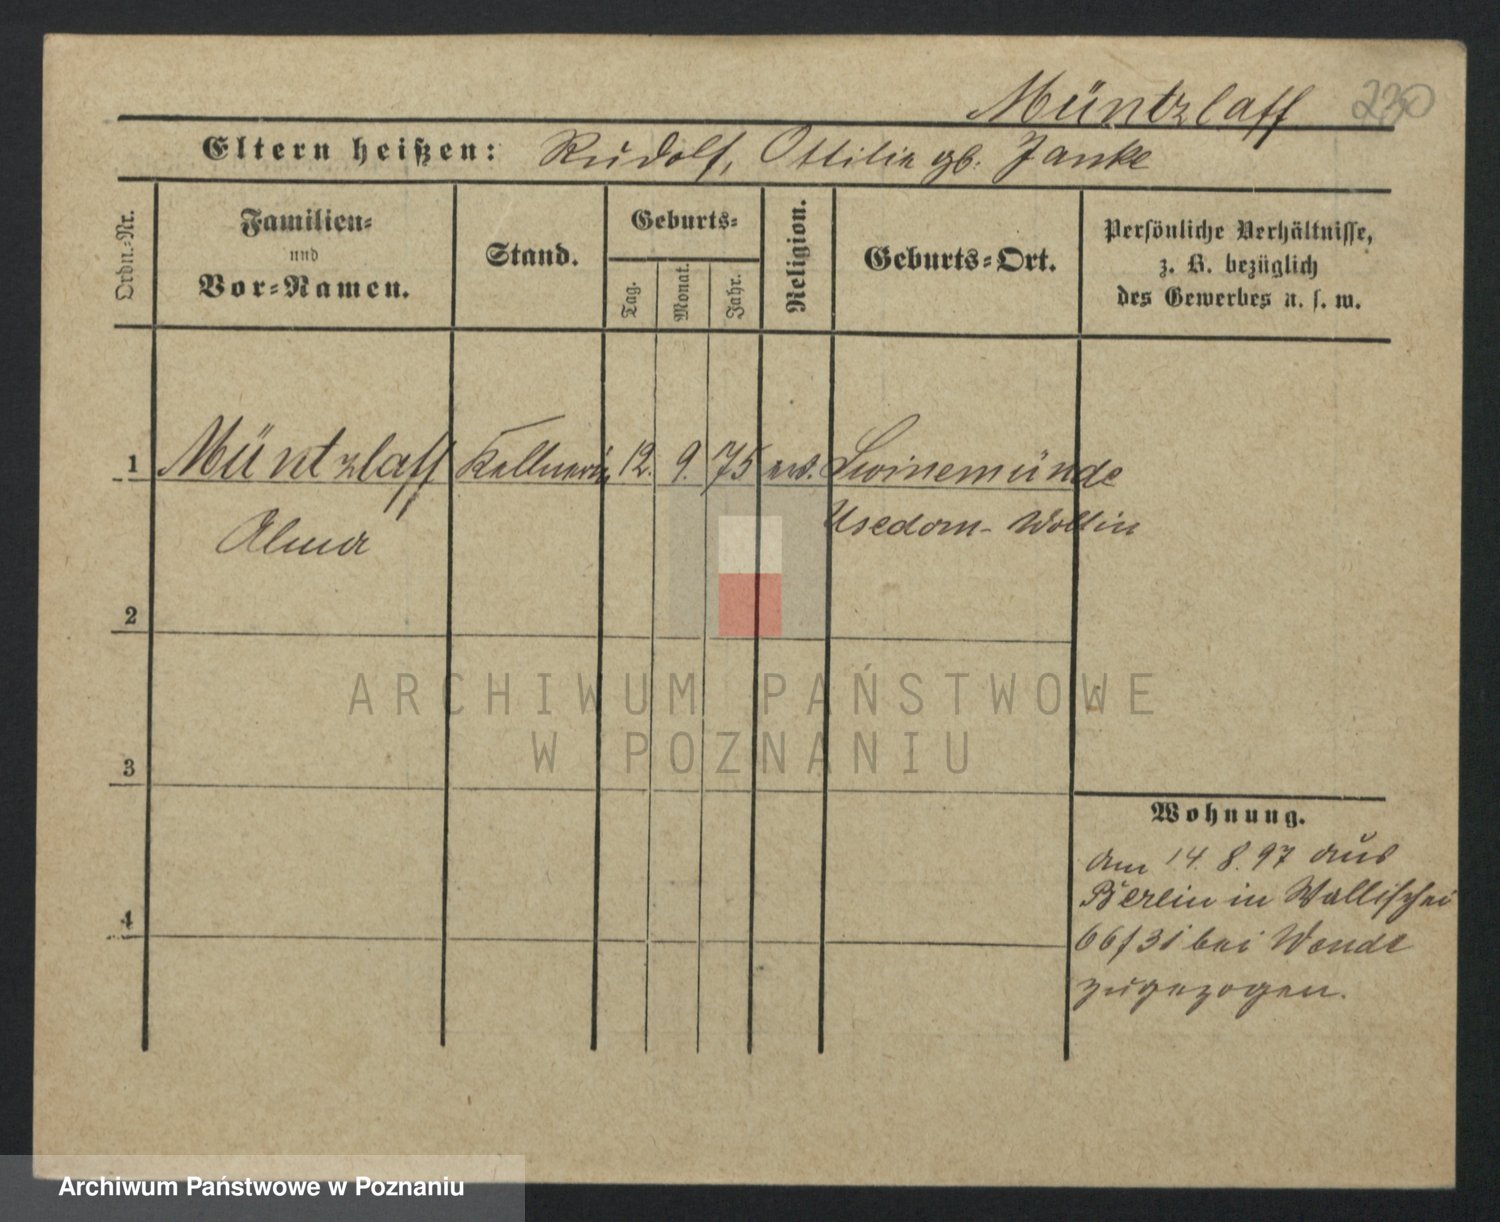 Müntzlaff 230
Eltern heißen: Rudolf, Ottilie gb. Janke
Ordn.-Nr.
Familien-
und
Vor-Namen.
Stand.
Geburts-
Tag.
Monat.
Jahr.
Religion.
Geburts-Ort.
Persönliche Verhältnisse,
z. B. bezüglich
des Gewerbes u. s. w.
1 Müntzlaff Kellnerin 12. 9. 75 Swinemünde
Alma Usedom-Wollin
2
3
4
Wohnung.
am 14.8.97 aus
Berlin in Wallischei
66/31 bei Wende
zugezogen.
ARCHIWUM PAŃSTWOWE
W POZNANIU
Archiwum Państwowe w Poznaniu